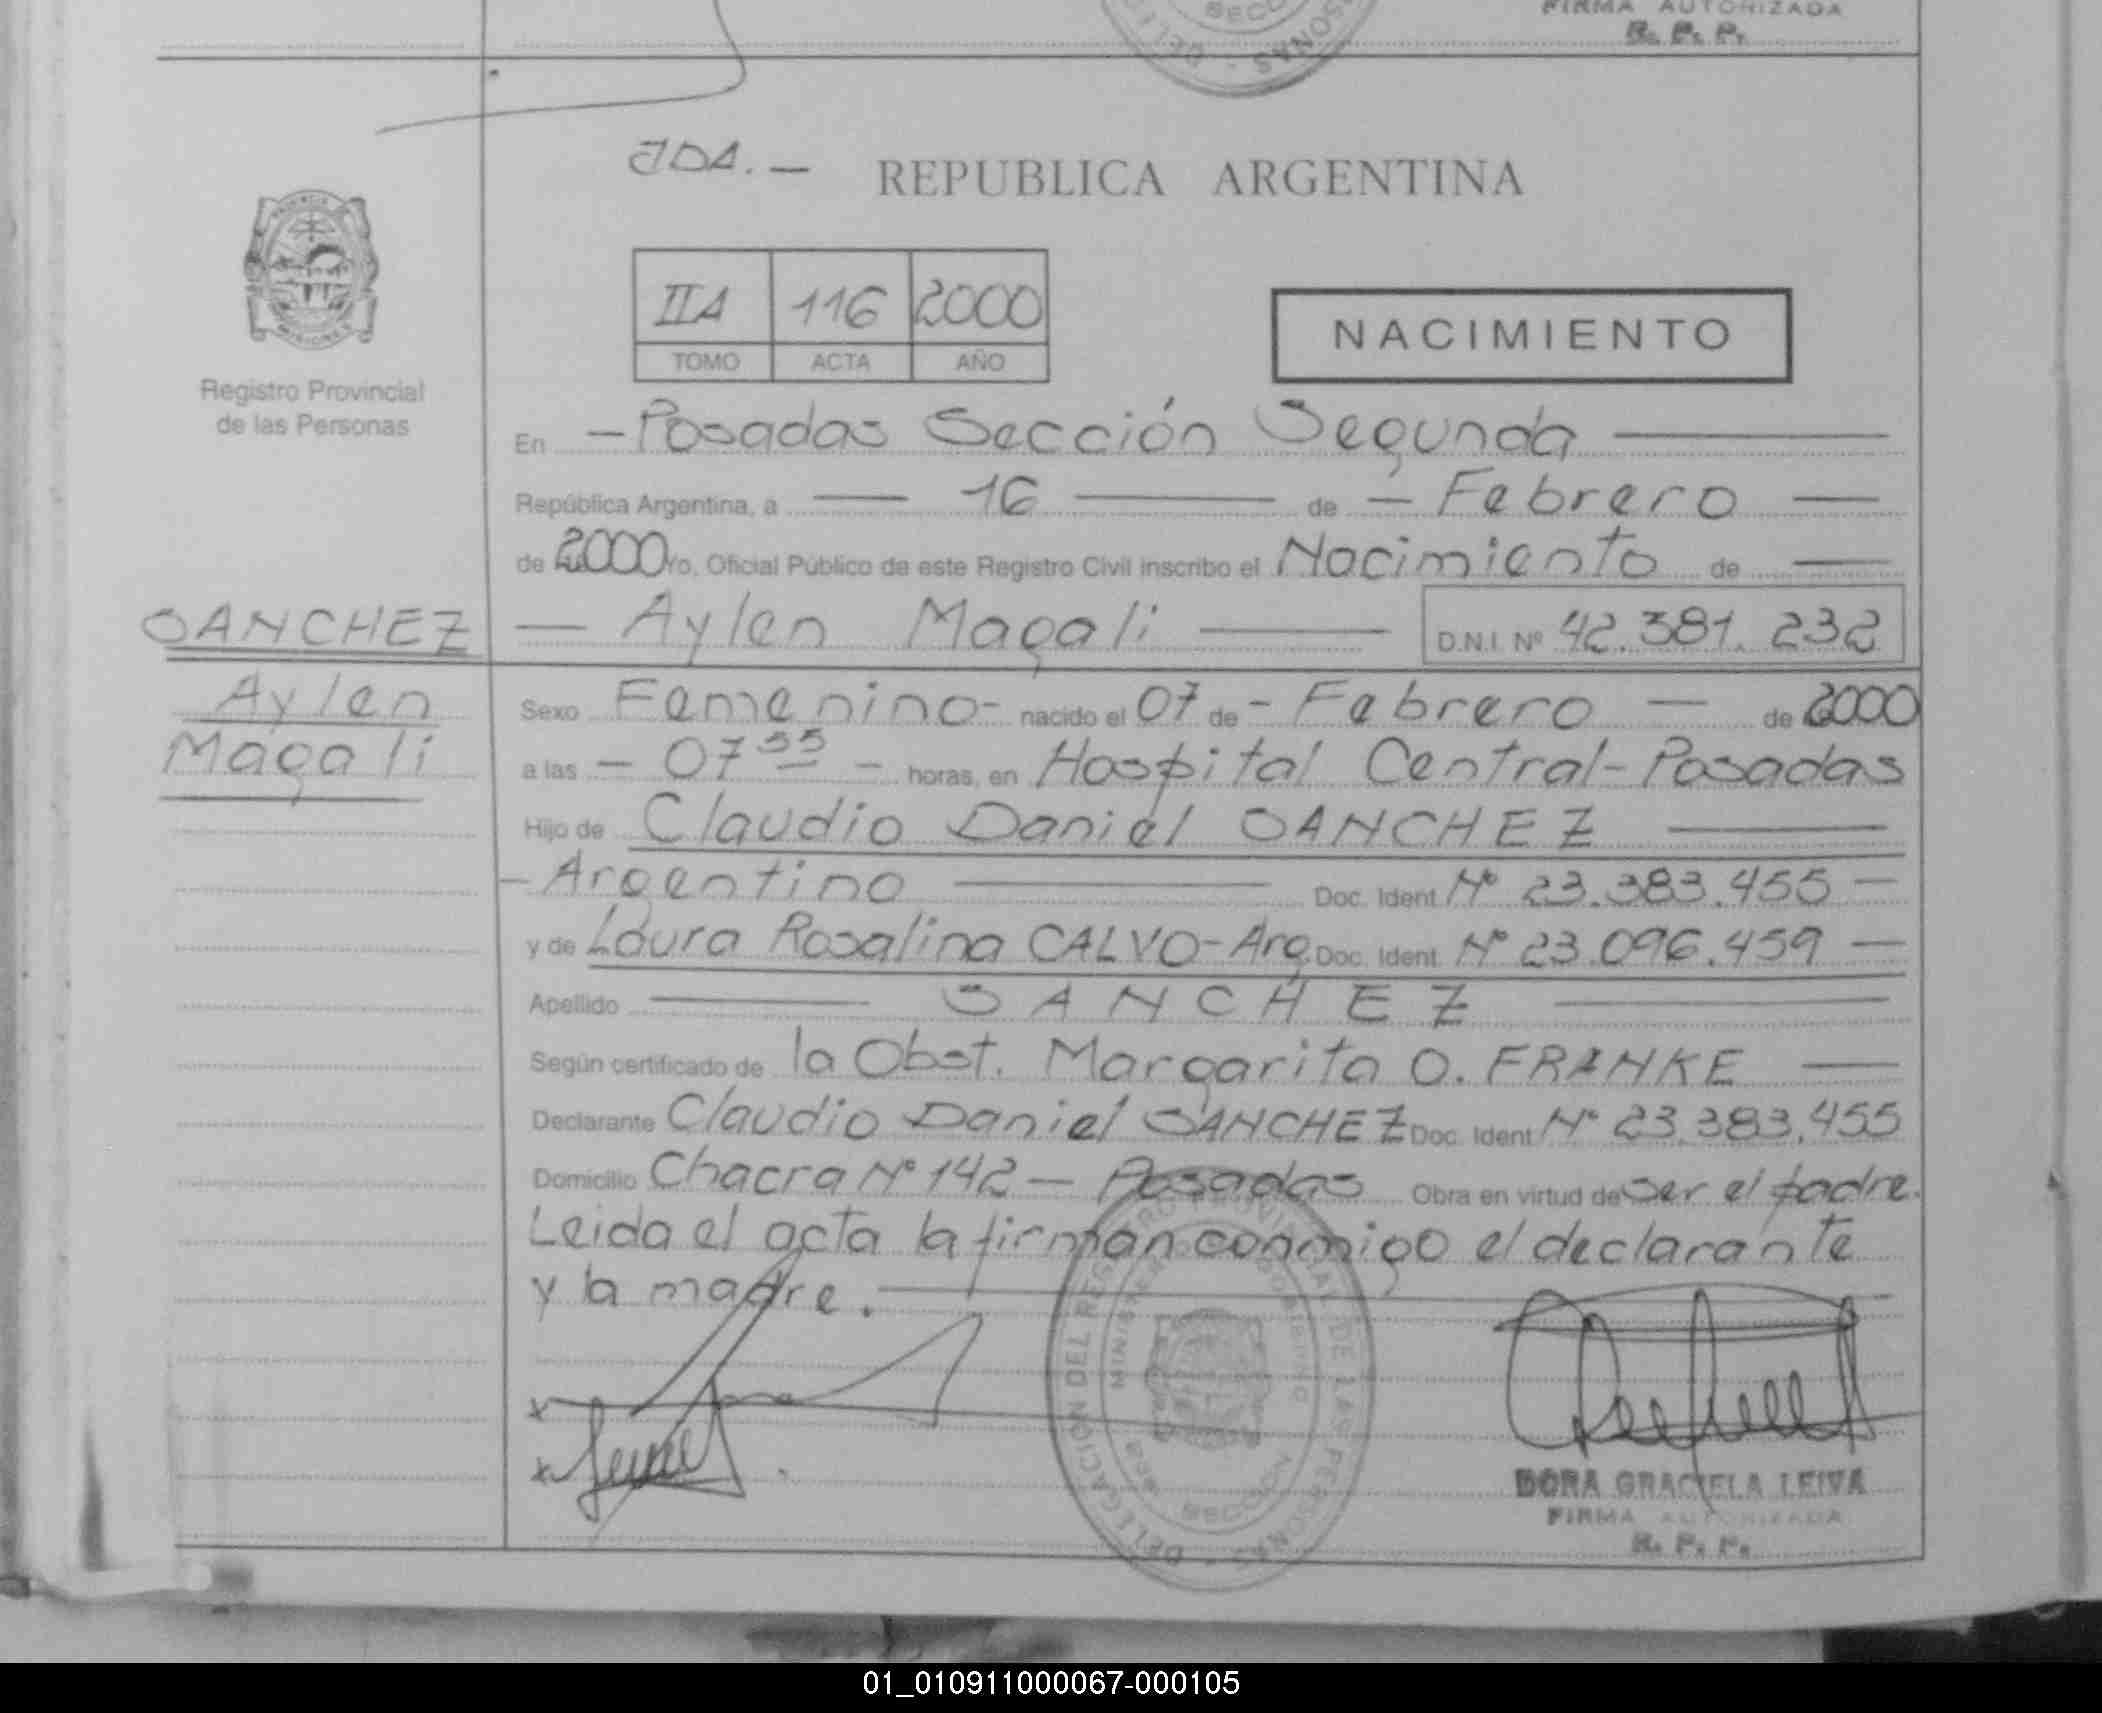 FIRMA AUTORIZADA
R. P. P.
JDA.—
REPUBLICA ARGENTINA
IIA 116 2000
TOMO ACTA AÑO
NACIMIENTO
Registro Provincial
de las Personas
En — Posadas Sección Segunda —
República Argentina, a — 16 — de — Febrero —
de 2000 Yo, Oficial Público de este Registro Civil inscribo el Nacimiento de —
SANCHEZ
— Aylen Magali — D.N.I. Nº 42.381.232
Aylen
Magali
Sexo Femenino- nacido el 07 de - Febrero — de 2000
a las — 07 35 — horas, en Hospital Central-Posadas
Hijo de Claudio Daniel SANCHEZ —
- Argentino — Doc. Ident. Nº 23.383.455 —
y de Laura Rosalina CALVO-Arg. Doc. Ident. Nº 23.096.459 —
Apellido — SANCHEZ —
Según certificado de la Obst. Margarita O. FRANKE —
Declarante Claudio Daniel SANCHEZ Doc. Ident. Nº 23.383.455
Domicilio Chacra Nº 142 — Posadas Obra en virtud de ser el padre.
Leida el acta la firman conmigo el declarante
y la madre. —
DELEGACION DEL REGISTRO PROVINCIAL DE LAS PERSONAS
MINISTERIO DE GOBIERNO
SECCION
DORA GRACIELA LEIVA
FIRMA AUTORIZADA
R. P. P.
01_010911000067-000105